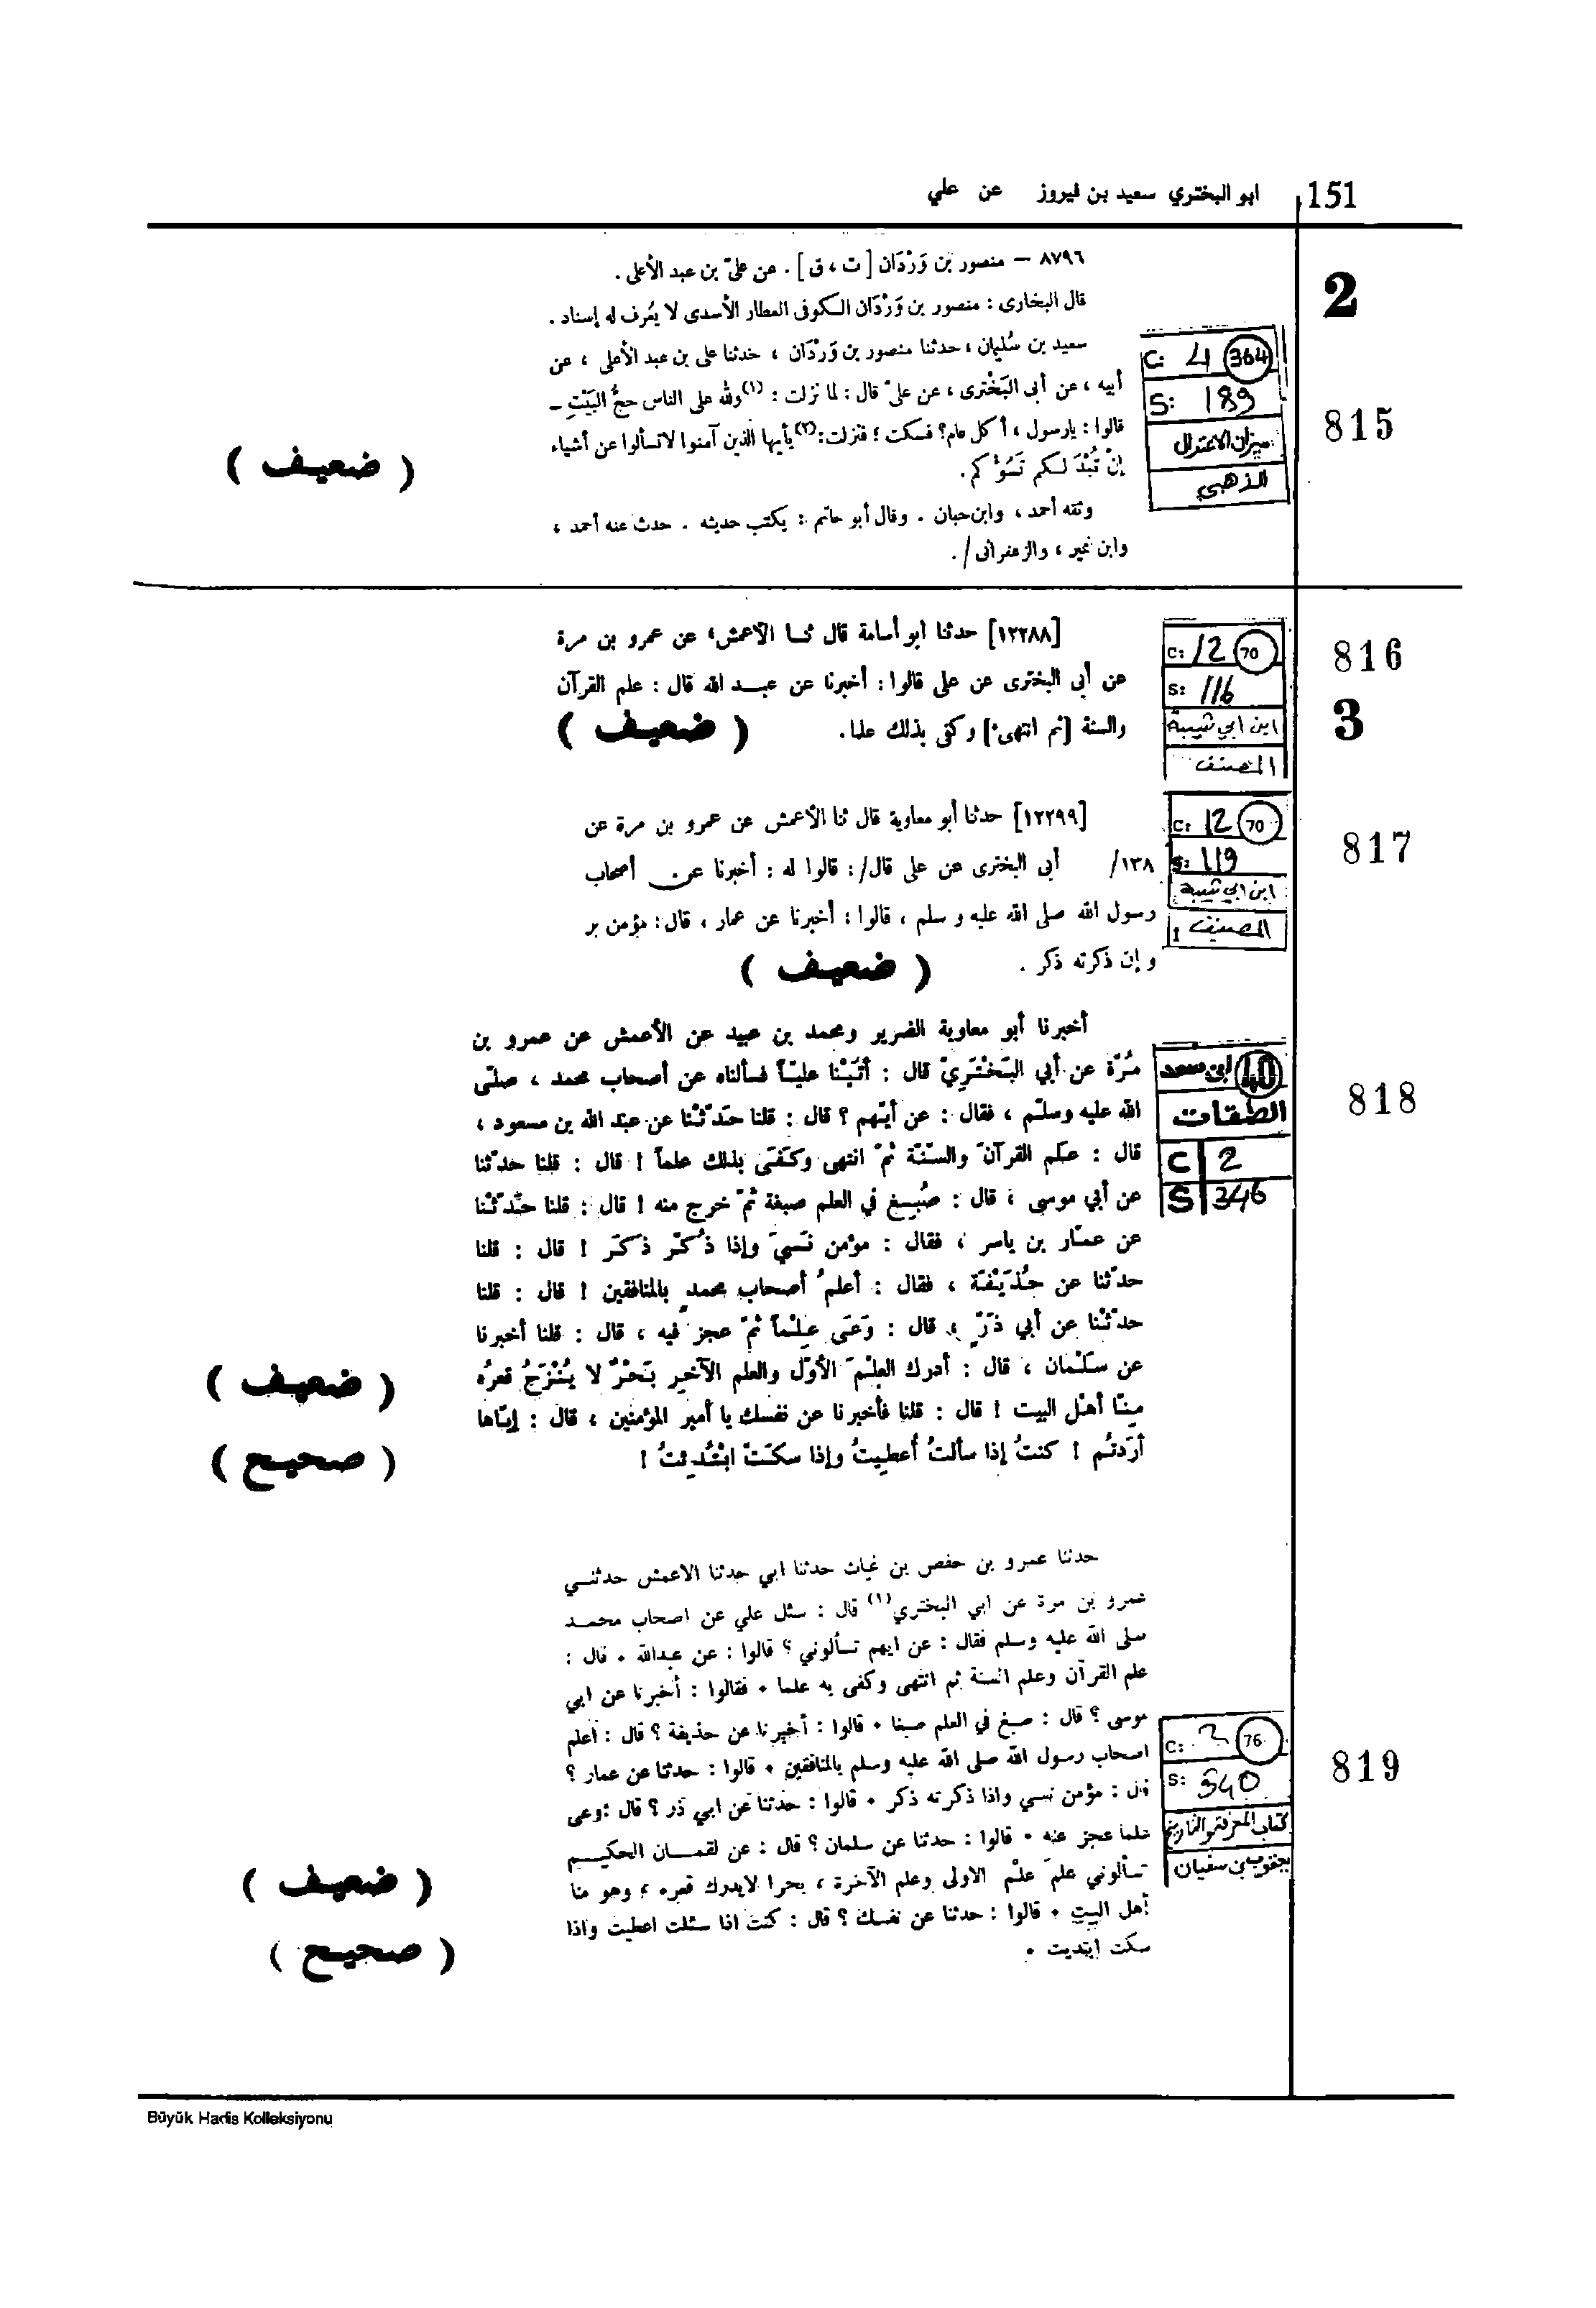 151 ابو البختري سعيد بن فيروز عن علي
2
٨٧٩٦ – منصور بن وَرْدَان [ ت ، ق ] . عن علىّ بن عبد الأعلى .
قال البخارى : منصور بن وَرْدَان الكوفى العطار الأسدى لا يُعرف له إسناد .
سعيد بن سُليمان ، حدثنا منصور بن وَرْدَان ، حدثنا على بن عبد الأعلى ، عن
أبيه ، عن أبى البَخْترى ، عن علىّ قال : لما نزلت : (١) ولله على الناس حجُّ البَيْتِ –
قالوا : يارسول ، أكل عام؟ فسكت ؛ فنزلت : (٢) يأيها الذين آمنوا لاتسألوا عن أشياء
إنْ تُبْدَ لكم تَسُؤْكم .
وثقه أحمد ، وابن حبان . وقال أبو حاتم : يكتب حديثه . حدث عنه أحمد ،
وابن نمير ، والزعفرانى / .
C: 4 364
S: 189
ميزان الاعتدال
الذهبي
815
( ضعيف )
[١٢٢٨٨] حدثنا ابو أسامة قال ثنا الأعمش، عن عمرو بن مرة
عن أبى البخترى عن على قالوا : أخبرنا عن عبد الله قال : علم القرآن
والسنة [ثم انتهى] وكفى بذلك علما .
( ضعيف )
C: 12 70
S: 116
ابن ابي شيبة
المصنف
816
3
[١٢٢٩٩] حدثنا أبو معاوية قال ثنا الأعمش عن عمرو بن مرة عن
١٣٨/ أبى البخترى عن على قال/: قالوا له : أخبرنا عن أصحاب
رسول الله صلى الله عليه و سلم ، قالوا : أخبرنا عن عمار ، قال : مؤمن بر
و إن ذكرته ذكر .
( ضعيف )
C: 12 70
S: 119
ابن ابي شيبة
المصنف
817
أخبرنا أبو معاوية الضرير ومحمد بن عبيد عن الأعمش عن عمرو بن
مُرّة عن أبي البَخْتَرِيّ قال : أتَيْنا عليّاً فسألناه عن أصحاب محمد ، صلّى
الله عليه وسلّم ، فقال : عن أيّهم ؟ قال : قلنا حَدّثْنا عن عبد الله بن مسعود ،
قال : عَلِم القرآنَ والسّنّة ثمّ انتهى وكَفَى بذلك علماً ! قال : قلنا حدّثنا
عن أبي موسى ، قال : صُبِغ في العلم صبغة ثمّ خرج منه ! قال : قلنا حَدّثْنا
عن عمّار بن ياسر ، فقال : مؤمن نَسِيَ وإذا ذُكّر ذَكَرَ ! قال : قلنا
حدّثنا عن حُذَيْفة ، فقال : أعلمُ أصحاب محمدٍ بالمنافقين ! قال : قلنا
حدّثْنا عن أبي ذَرّ ، قال : وَعَى عِلْماً ثمّ عجز فيه ، قال : قلنا أخبرنا
عن سَلْمان ، قال : أدرك العِلْمَ الأوّل والعلم الآخير بَحْرٌ لا يُنْزَحُ قعرُه
مِنّا أهلَ البيت ! قال : قلنا فأخبرنا عن نفسك يا أمير المؤمنين ، قال : إيّاها
أرَدتُم ! كنتُ إذا سألتُ أُعطِيتُ وإذا سكتّ ابْتُدِئتُ !
40 ابن سعد
الطبقات
C 2
S 346
818
( ضعيف )
( صحيح )
حدثنا عمرو بن حفص بن غياث حدثنا ابي حدثنا الاعمش حدثني
عمرو بن مرة عن ابي البختري (١) قال : سئل علي عن اصحاب محمد
صلى الله عليه وسلم فقال : عن ايهم تسألوني ؟ قالوا : عن عبدالله . قال :
علم القرآن وعلم السنة ثم انتهى وكفى به علما . فقالوا : أخبرنا عن ابي
موسى ؟ قال : صبغ في العلم صبغا . قالوا : أخبرنا عن حذيفة ؟ قال : أعلم
اصحاب رسول الله صلى الله عليه وسلم بالمنافقين . قالوا : حدثنا عن عمار ؟
قال : مؤمن نسي واذا ذكرته ذكر . قالوا : حدثنا عن ابي ذر ؟ قال : وعى
علما عجز عنه . قالوا : حدثنا عن سلمان ؟ قال : عن لقمان الحكيم
تسألوني علمَ علْم الاولى وعلم الآخرة ، بحرا لايدرك قعره ، وهو منا
أهل البيت . قالوا : حدثنا عن نفسك ؟ قال : كنت اذا سئلت اعطيت واذا
سكت ابتديت .
C: 2 76
S: 540
كتاب المعرفة والتاريخ
يعقوب بن سفيان
819
( ضعيف )
( صحيح )
Büyük Hadis Kolleksiyonu